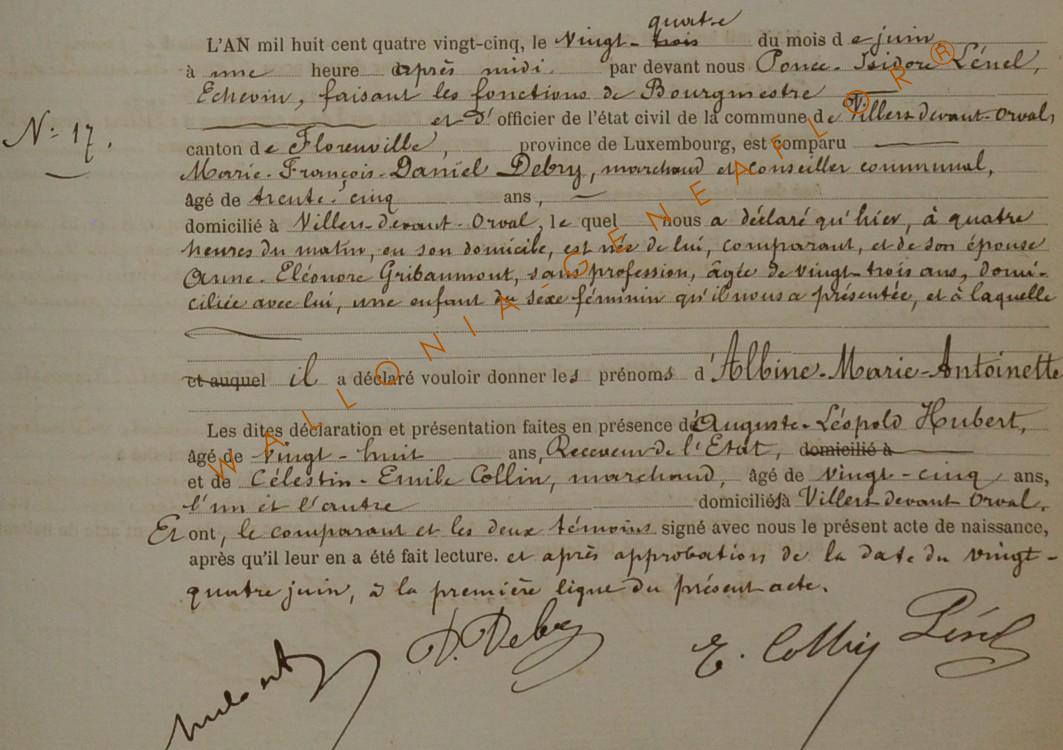 L'AN mil huit cent quatre vingt-cinq, le vingt-trois quatre du mois de juin
à une heure après midi par devant nous Ponce-Isidore Lénel,
Echevin, faisant les fonctions de Bourgmestre
et d'officier de l'état civil de la commune de Villers devant-Orval,
N° 17.
canton de Florenville, province de Luxembourg, est comparu
Marie-François-Daniel Debry, marchand et conseiller communal,
âgé de trente-cinq ans,
domicilié à Villers-devant-Orval, le quel nous a déclaré qu'hier, à quatre
heures du matin, en son domicile, est née de lui, comparant, et de son épouse
Anne-Eléonore Gribaumont, sans profession, âgée de vingt-trois ans, domi-
ciliée avec lui, une enfant du sexe féminin qu'il nous a présentée, et à laquelle
et auquel il a déclaré vouloir donner les prénoms d'Albine-Marie-Antoinette
Les dites déclaration et présentation faites en présence de Auguste-Léopold Hubert,
âgé de vingt-huit ans, Receveur de l'Etat, domicilié à
et de Célestin-Emile Collin, marchand, âgé de vingt-cinq ans,
l'un et l'autre domiciliés à Villers devant Orval.
Et ont, le comparant et les deux témoins signé avec nous le présent acte de naissance,
après qu'il leur en a été fait lecture. et après approbation de la date du vingt-
quatre juin, à la première ligne du présent acte.
Hubert D. Debry E. Collin Lénel
WALLONIA-GENEAFLORR